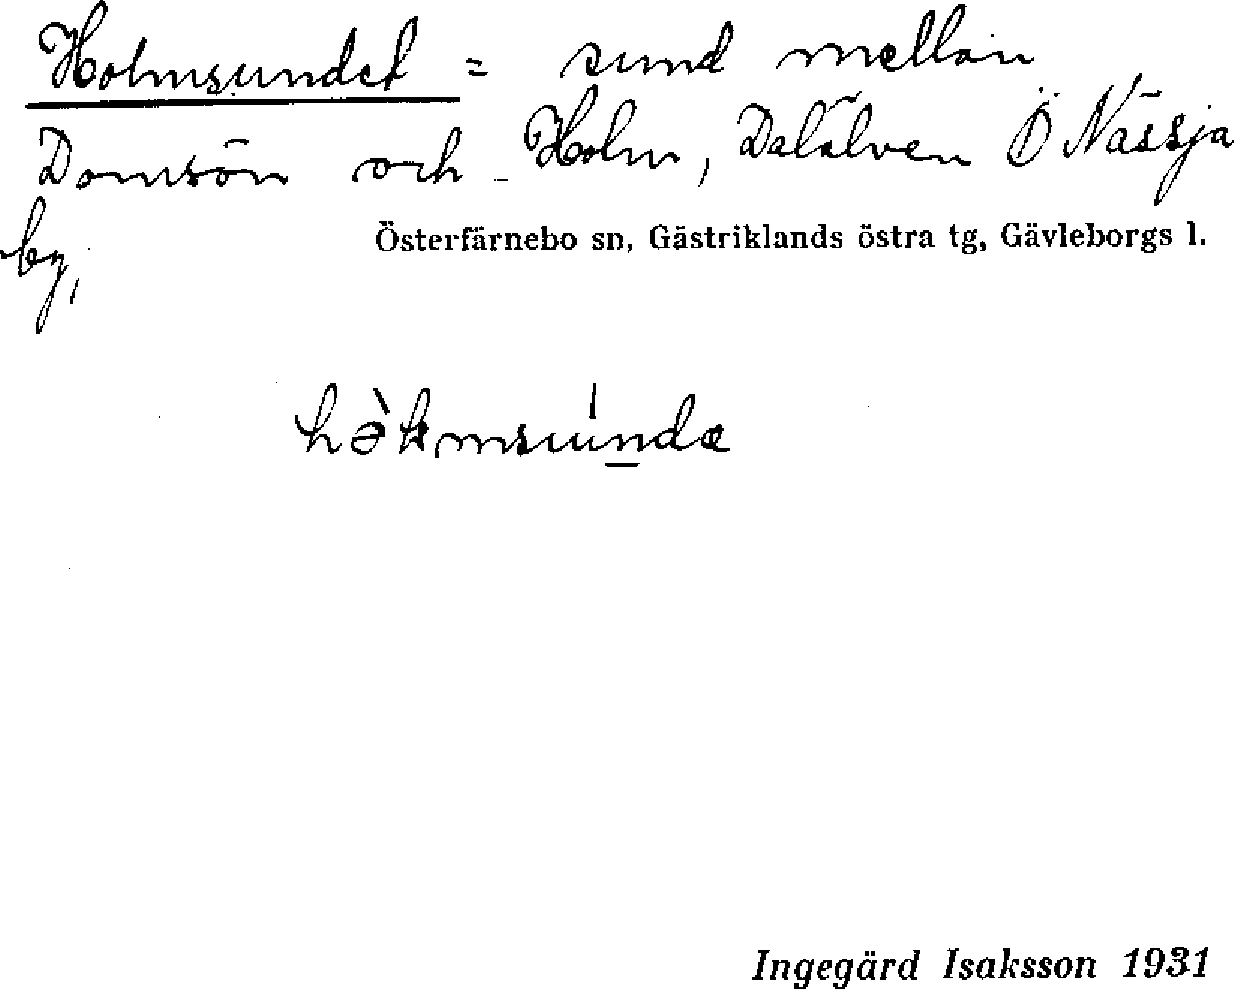 Holmsundet = sund mellan
Domsön och Holm, Dalälven Ö Nässja
by,
Österfärnebo sn, Gästriklands östra tg, Gävleborgs l.
Ingegärd Isaksson 1931